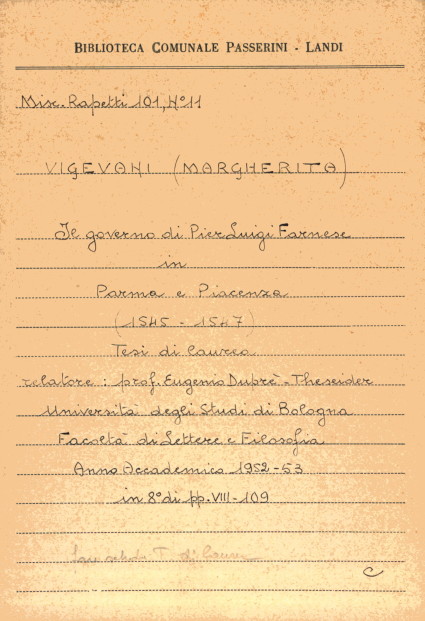 BIBLIOTECA COMUNALE PASSERINI - LANDI
Misc. Rapetti 101, N° 11
VIGEVANI (MARGHERITA)
Il governo di Pier Luigi Farnese
in
Parma e Piacenza
(1545 - 1547)
Tesi di laurea
relatore: prof. Eugenio Duprè-Theseider
Università degli Studi di Bologna
Facoltà di Lettere e Filosofia
Anno Accademico 1952-53
in 8° di pp. VIII-109
T. di laurea
C